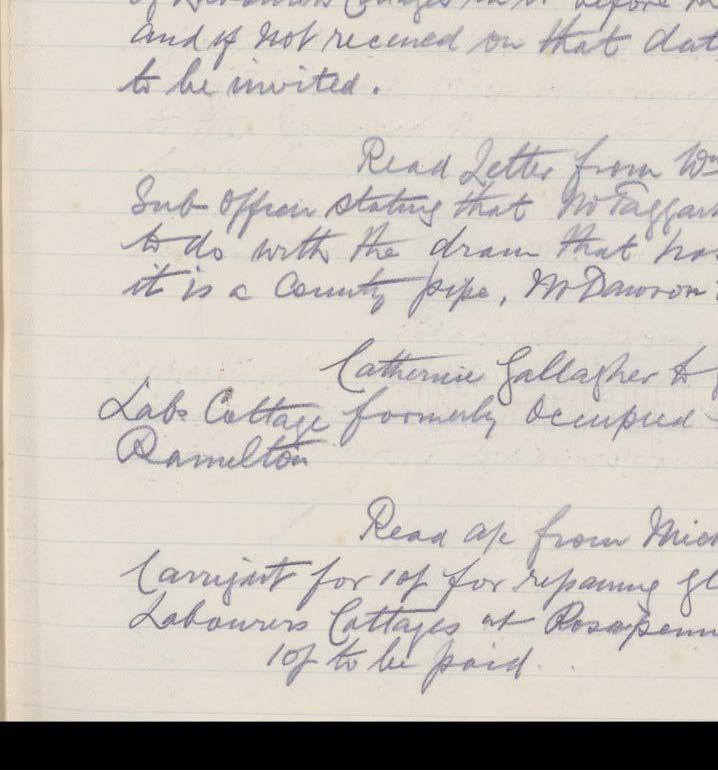 of Labourers Cottages before
and if not received on that dat
to be invited.
Read Letter from Wm
Sub Officer stating that McTaggart
to do with the drain that has
it is a County pipe, Mr Dawson
Catherine Gallagher to g
Labs Cottage formerly Occupied
Ramelton
Read a/c from Mich
Carrigart for 10/ for repairing gl
Labourers Cottages at Rosapenn
10/ to be paid.